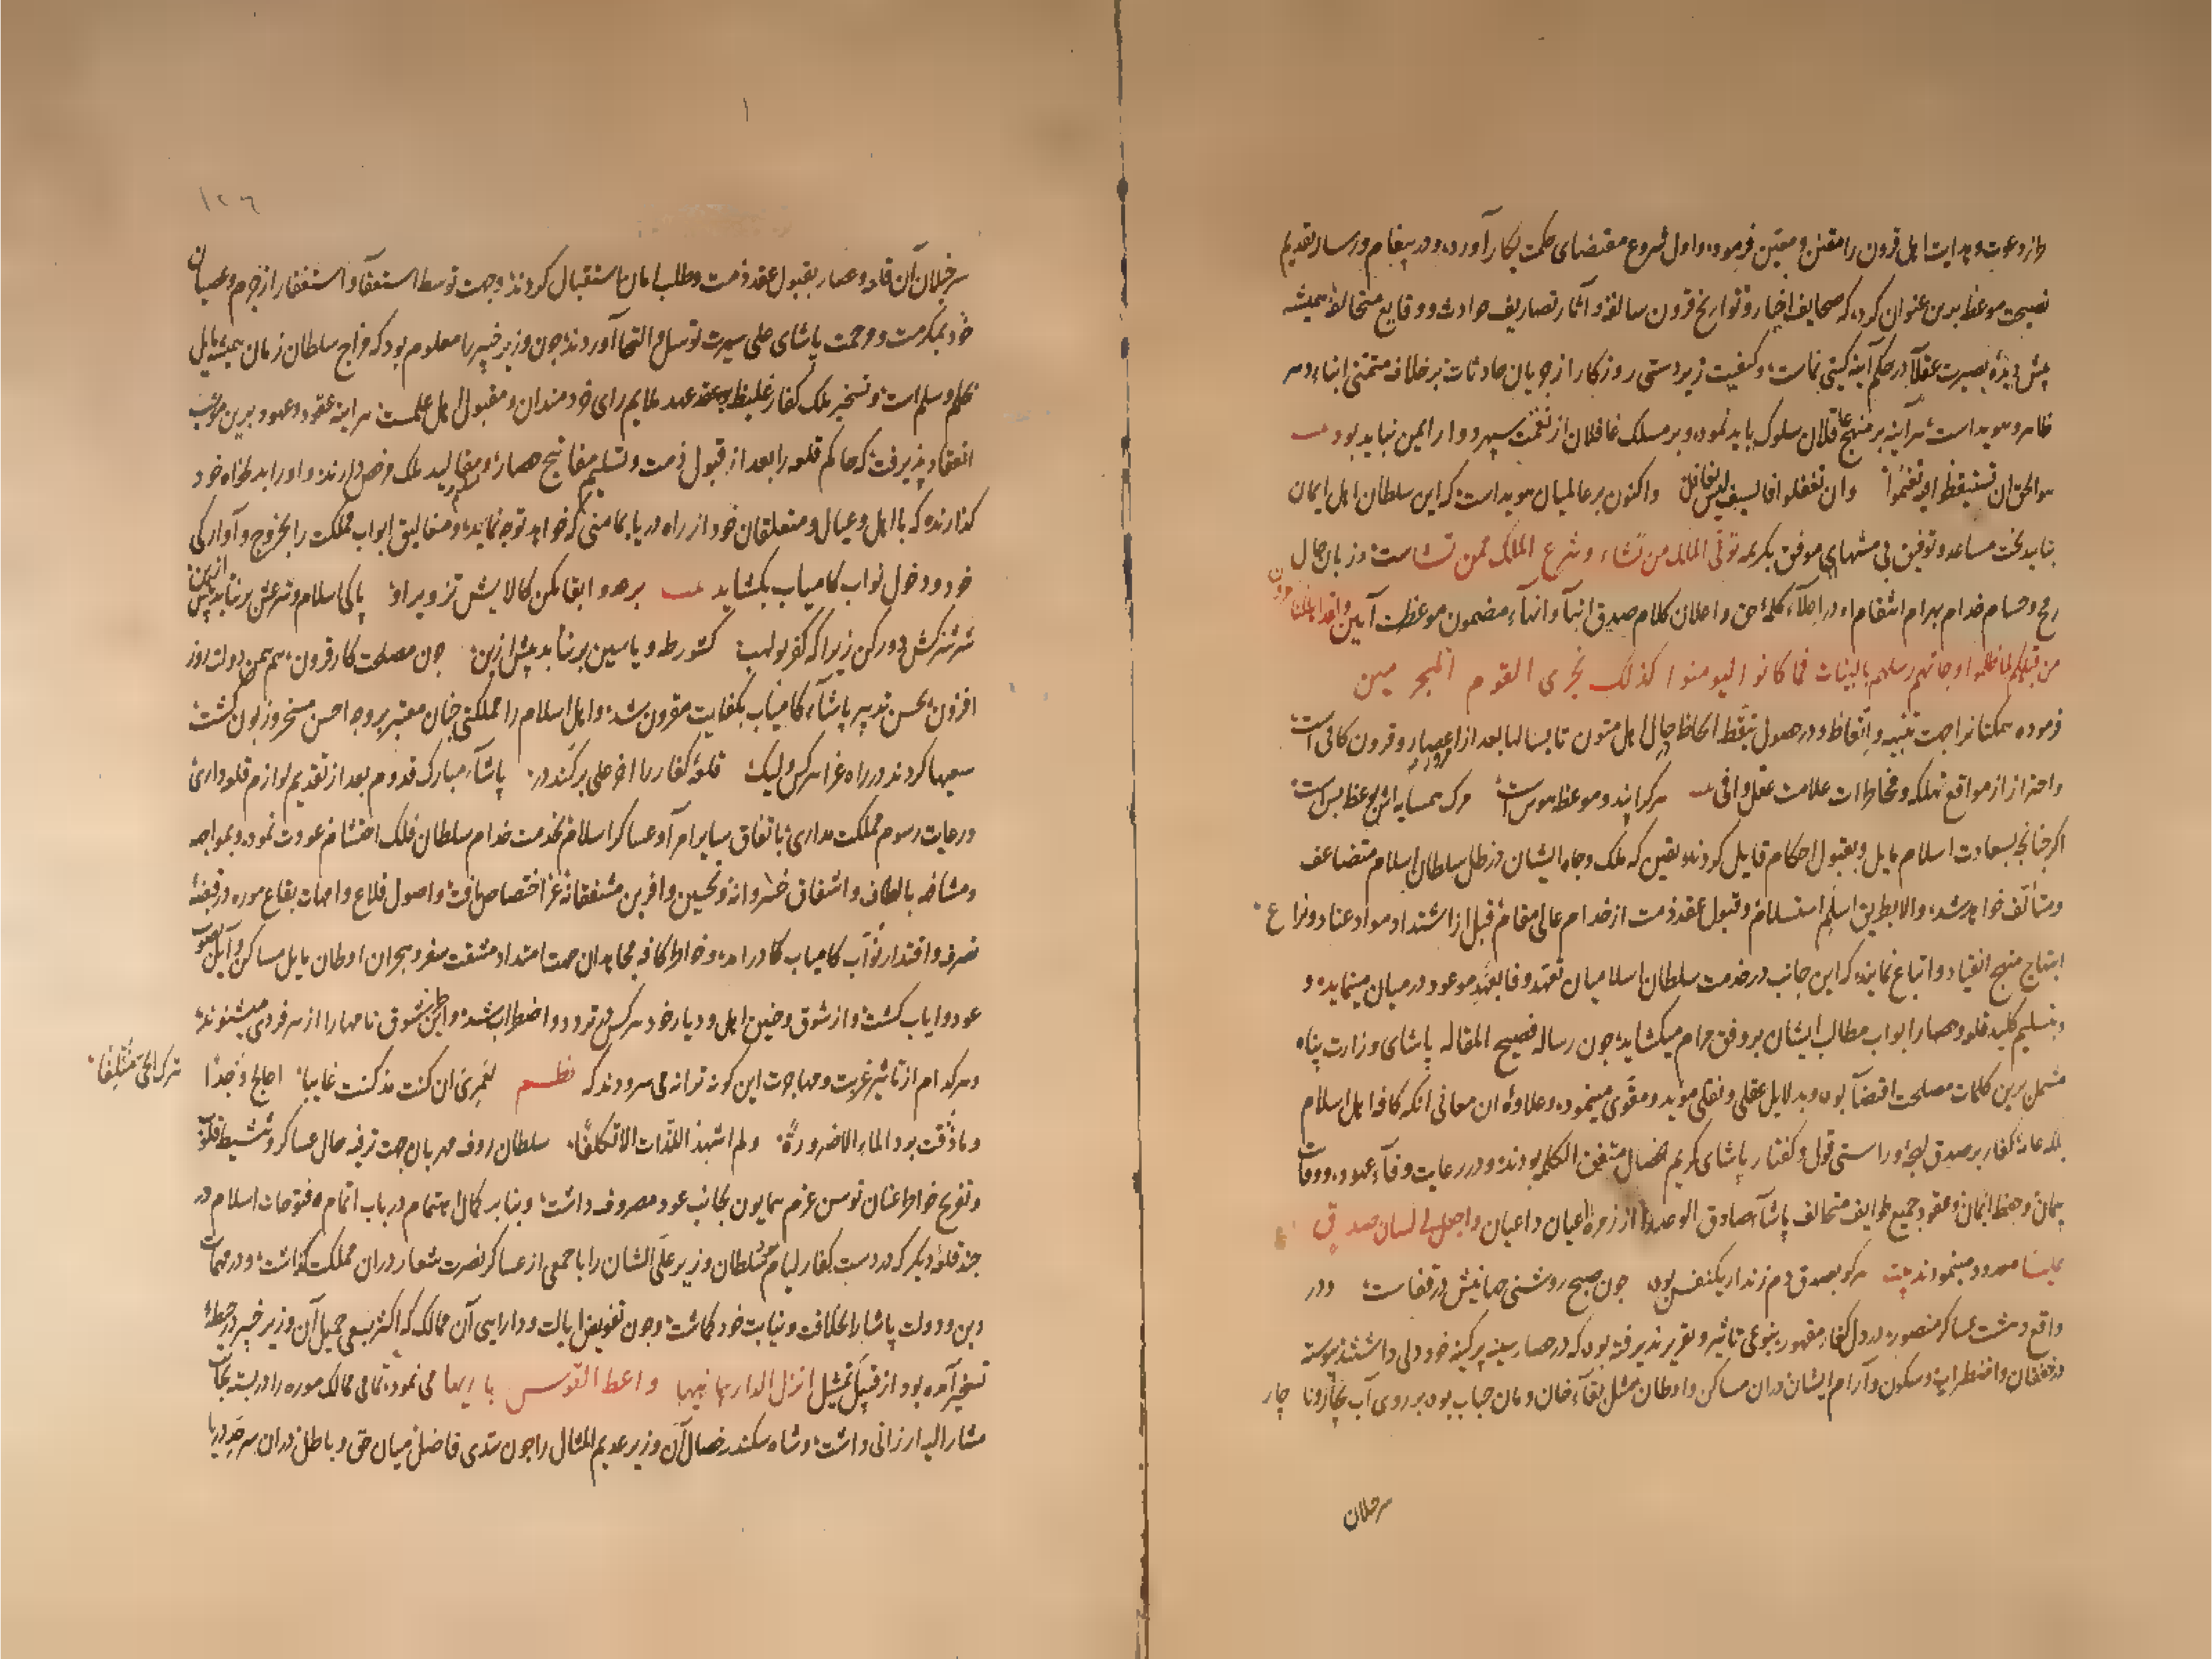 طرز دعوت و هدایت اهل قرون را مقنن و معین فرموده و اول شروع مقتضای حکمت بکار آورده و در پیغام و رسار تقدیم
نصیحت موعظ برین عنوان کرد که صحایف اخبار و تواریخ قرون سالفه و آثار تصاریف حوادث و وقایع متخالفه همیشه
پیش دیدهٔ بصیرت عقلا در حکم آینه کیتی نماست و کیفیت زبردستی روزکار از جریان حادثات بر خلاف متمنی ابناء دهر
ظاهر و هویداست هر آینه بر منهج عاقلان سلوک باید نمود و بر مسلک غافلان از نقمت سپهر دوار ایمن نباید بود
هو الحق ان تستیقظوا فیه تغنموا وان تغفلوا فالسیف لیس بغافل واکنون بر عالمیان هویداست که این سلطان اهل ایمان
بتایید بخت مساعد و توفیق بی منتهای موفق بکریمه توتی الملک من تشاء و تنزع الملک ممن تشاست و زبان حال
رمح و حسام خدام بهرام انتقام او در اعلاء کلمهٔ حق و اعلان کلام صدق انبآ و انهاء مضمون موعظت آیین ولقد اهلکنا القرون
من قبلکم لما ظلموا و جاتهم رسلهم بالبینات فما کانوا لیومنوا کذلک نجزی القوم المجرمین
فرموده همکنانرا جهت تنبیه و اتعاظ و در حصول تیقظ الحاظ حال اهل متون تا بسالها بعد از مرور اعصار و قرون کافی است
و احتراز از مواقع تهلکه و مخاطرات علامت عقل وافی هر کرا پند و موعظه هوس است مرک همسایه اش بوعظ بس است
اکر چنانچه بسعادت اسلام مایل و بقبول احکام قایل کردند یقین که ملک و جاه ایشان در ظل سلطان اسلام متضاعف
و متآلف خواهد شد و الا بطریق اسلم استسلام و قبول عقد ذمت از خدام عالی مقام قبل از اشتداد مواد عناد و نزاع
ابتهاج منهج انقیاد و اتباع نمایند که این جانب در خدمت سلطان اسلامیان تعهد وفا بعهد موعود در میان مینماید و
و بتسلیم کلید قلعه و حصار ابواب مطالب ایشان بر وفق مرام میکشاید چون رساله فصیح المقاله پاشای وزارت پناه
مشمل برین کلمات مصلحت اقتضآ بود و بدلایل عقلی و نقلی موید و مقوی مینمود و علاوهٔ ان معانی انکه کافه اهل اسلام
بلکه عامهٔ کفار بر صدق لهجه و راستی قول و کفتار پاشای کریم الخصال متفق الکلمه بودند و در رعایت وفآء عهود و وفاق
پیمان و حفظ ایمان و عقود جمیع طوایف متخالف پاشآء صادق الوعد را از زمرهٔ اعیان داعیان واجعل لی لسان صدق
معدود مینمودند بیت هر کو بصدق دم زند ار یکنفس بود چون صبح روشنی جهانیش در قفاست و در
واقع دهشت عساکر منصوره در دل کفار مقهور بنوعی تاثیر و تقریر پذیرفته بود که در حصار سینه پر کینه خود دلی داشتند پیوسته
در خفقان و اضطراب و سکون و آرام ایشان در ان مساکن و اوطان مثل بقآء خان و مان حباب بود بر روی آب بچار و ناچار
سرخیلان
۱۲٦
سرخیلان آن قلعه و حصار بقبول عقد ذمت و طلب امان استقبال کردند و جهت توسط استعفآ و استغفار از جرم و عصیان
خود بمکرمت و مرحمت پاشای علی سیرت توسل و التجا آوردند چون وزیر خبیر را معلوم بود که مزاج سلطان زمان همیشه مایل
بحلم و سلم است و تسخیر ملک کفار غلیظ بعقد عهد ملایم رای خردمندان و مقبول اهل علمست هر اینه عقود و عهود برین موجب
انعقاد پذیرفت که حاکم قلعه را بعد از قبول ذمت و تسلیم مفاتیح حصار و تسلیم مقالید ملک مرخص دارند و او را بدلخواه خود
کذارند که با اهل و عیال و متعلقان خود از راه دریا بمامنی که خواهد توجه نماید و مغالیق ابواب مملکت را بخروج و آوارکی
خود و دخول نواب کامیاب بکشاید بر هدو ابقا مکن کالایش تزویر او پاکی اسلام و شرعش بر نتابد بیش ازین
شر شرکش دور کن زیرا که کفر بولهب کشور طه و یاسین بر نتابد بیش ازین چون مصلحت کار قرون هم بیمن دولت روز
افزون بحسن تدبیر پاشآء کامیاب بکفایت مقرون شد و اهل اسلام را مملکتی چنان معتبر بر وجه احسن مسخر و زبون کشت
سعیها کردند در راه غزا هر کس ولیک قلعهٔ کفار را اخر علی بر کند در پاشآء مبارک قدوم بعد از تقدیم لوازم قلعه داری
و رعایت رسوم مملکت مداری باتفاق سایر امرآء و عساکر اسلام بخدمت خدام سلطان فلک احتشام عودت نمود و بمواجهه
و مشافهه بالطاف و اشفاق خسروانه و تحسین و افرین مشفقانه عز اختصاص یافت و اصول قلاع و امهات بقاع موره در قبضهٔ
تصرف و اقتدار نوّاب کامیاب کا در امد و خواطر کافه مجاهدان جهت امتداد مشقت سفر و هجران اوطان مایل مساکن و آیل بصوب
عود و ایاب کشت و از شوق و حنین اهل و دیار خود هر کس در تردد و اضطراب شد و الحان شوق نامها را از هر فردی میشنوند
و هر کدام از تاثیر غربت و مهاجرت این کونه ترانه می سرودند که نظم لعمری ان کنت مذ کنت غایبا اعالج وجدًا
ترک الحی متلفًا
و ما ذقت برد الماء الا ضرورةً ولم اشهد اللذات الا تکلفًا سلطان روف مهربان جهت ترفیه حال عساکر و تنشیط قلوب
و تفریح خواطر عنان توسن عزم همایون بجانب عود مصروف داشت و بنابر کمال اهتمام در باب اتمام فتوحات اسلام در
چند قلعهٔ دیکر که در دست کفار لیام سلطان وزیر علی الشان را با جمعی از عساکر نصرت شعار در ان مملکت کذاشت و در مهمات
دین و دولت پاشا را بخلافت و نیابت خود کماشت و چون تفویض ایالت و دارایی آن ممالک که اکثر بسعی جمیل آن وزیر خبیر در حیطهٔ
تسخیر آمده بود از قبیل تمثیل انزل الدار بانیها و اعط القوس باریها می نمود تمامی ممالک موره را در بسته بجانب
مشار الیه ارزانی داشت و شاه سکندر خصال آن وزیر عدیم المثال را چون سدی فاضل میان حق و باطل در ان سرحد دریا